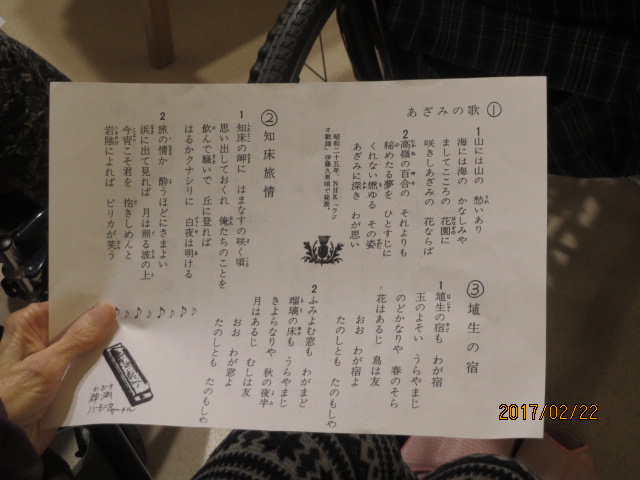 ① あざみの歌
1 山には山の 愁いあり
海には海の かなしみや
ましてこころの 花園に
咲きしあざみの 花ならば
2 高嶺の百合の それよりも
秘めたる夢を ひとすじに
くれない燃ゆる その姿
あざみに深き わが思い
昭和二十五年、NHK「ラジ
オ歌謡」伊藤久男唄で発表。
② 知床旅情
1 知床の岬に はまなすの咲く頃
思い出しておくれ 俺たちのことを
飲んで騒いで 丘に登れば
はるかクナシリに 白夜は明ける
2 旅の情か 酔うほどにさまよい
浜に出て見れば 月は照る波の上
今宵こそ君を 抱きしめんと
岩陰によれば ピリカが笑う
③ 埴生の宿
1 埴生の宿も わが宿
玉のよそい うらやまじ
のどかなりや 春のそら
花はあるじ 鳥は友
おお わが宿よ
たのしとも たのもしや
2 ふみよむ窓も わがまど
瑠璃の床も うらやまじ
きよらなりや 秋の夜半
月はあるじ むしは友
おお わが窓よ
たのしとも たのもしや
2017/02/22